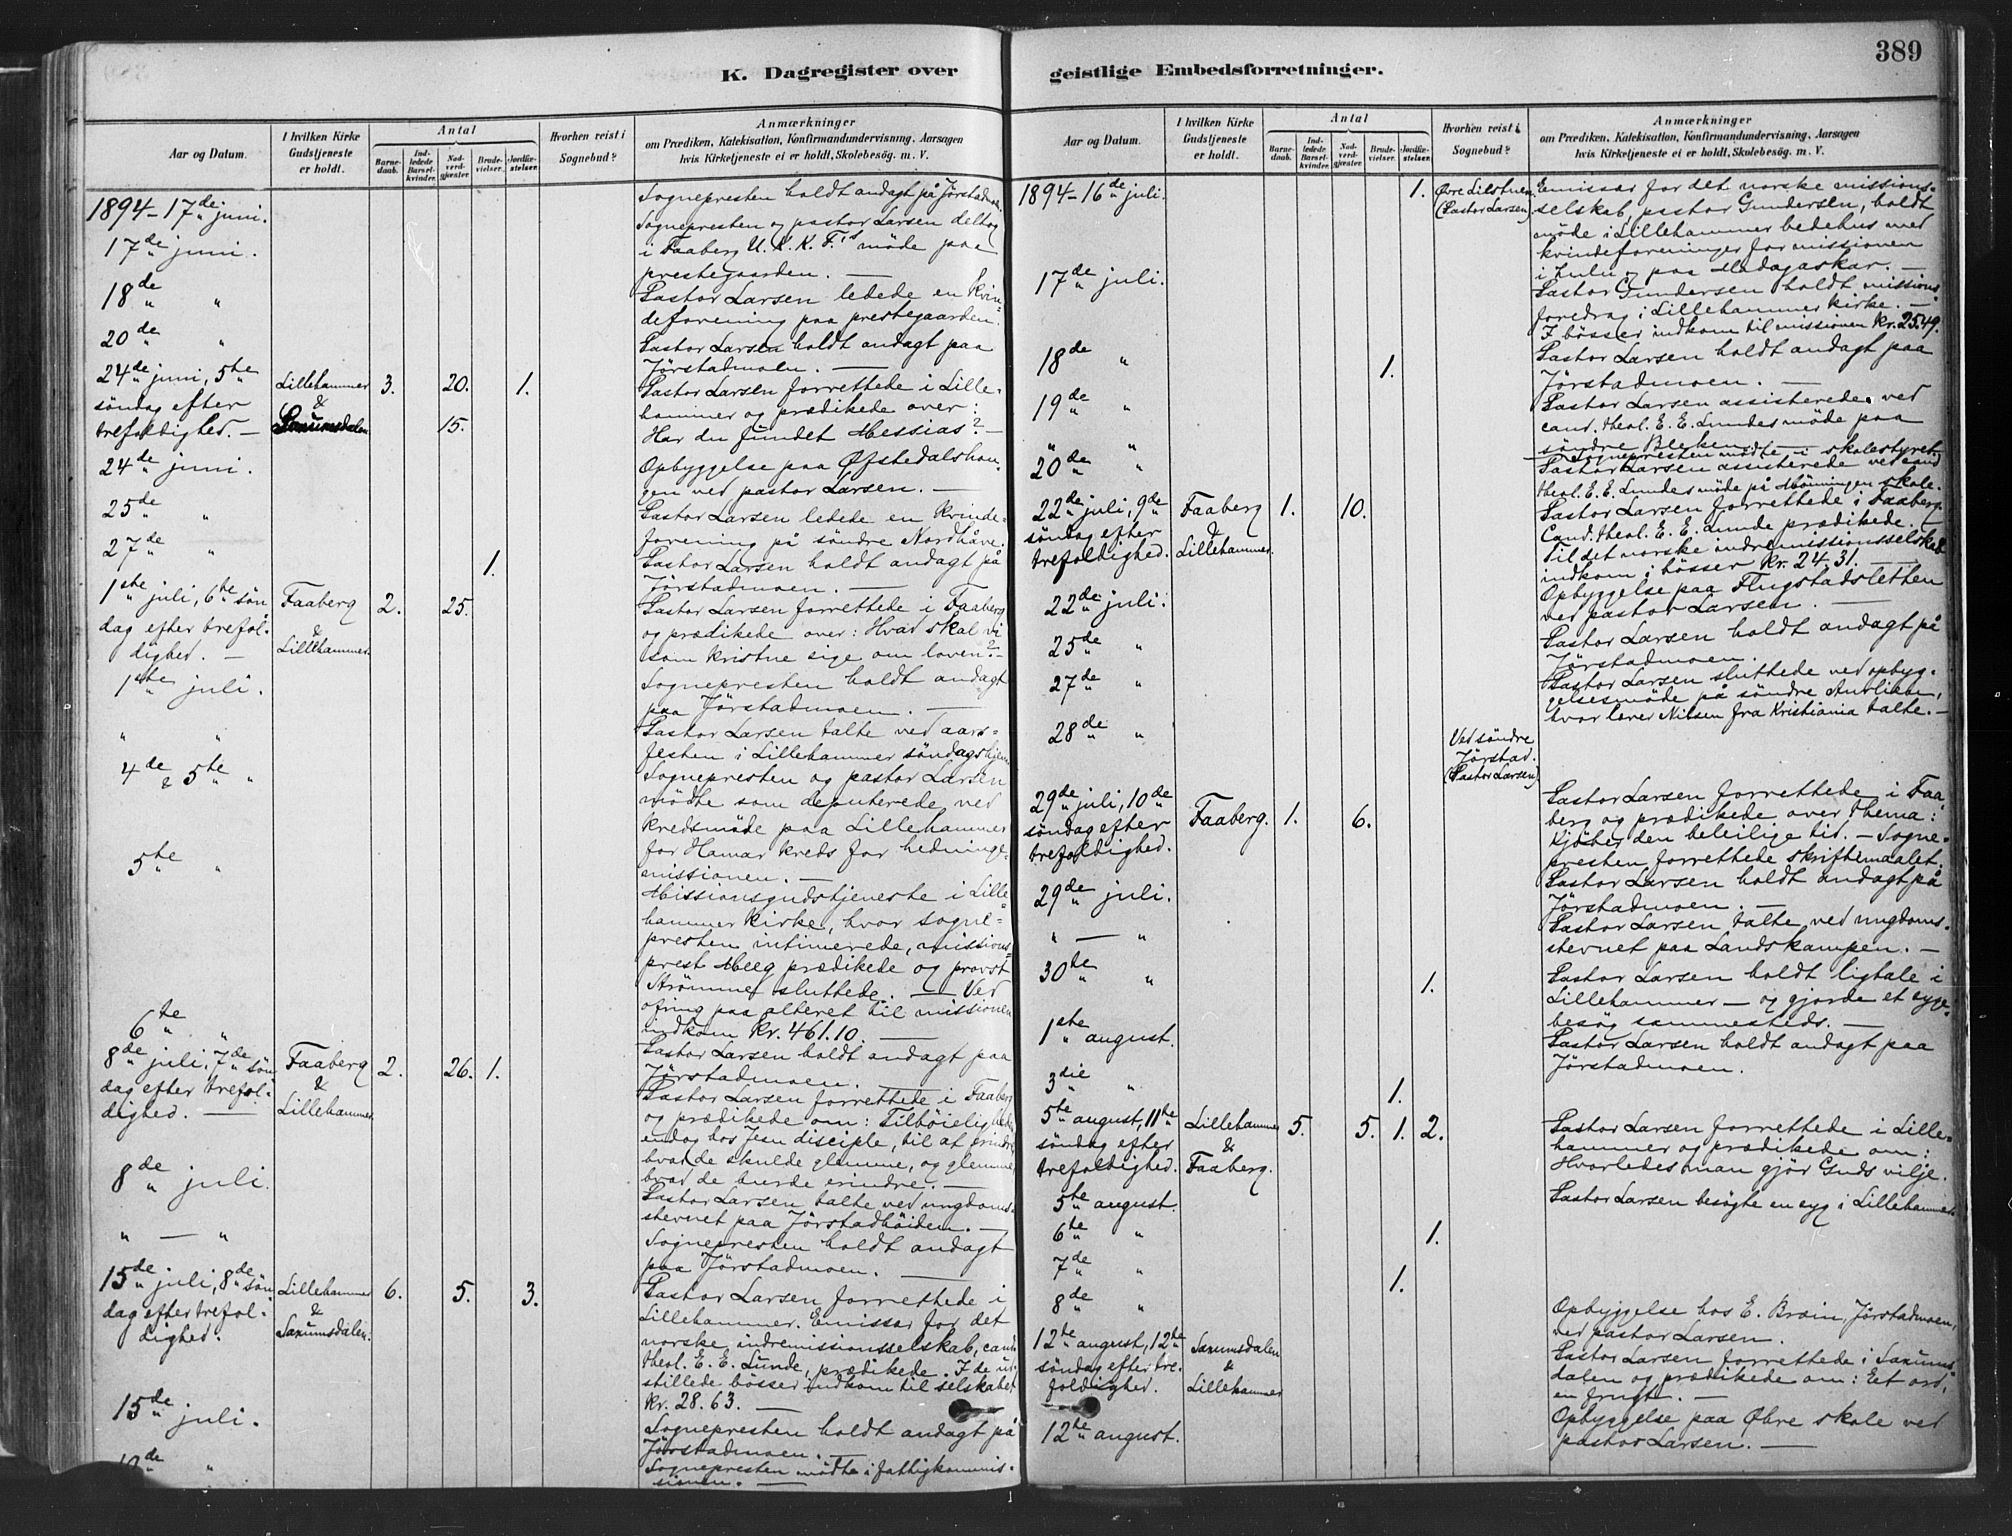 389
K. Dagregister over geistlige Embedsforretninger.
Aar og Datum.
I hvilken Kirke Gudstjeneste er holdt.
Antal
Barnedaab.
Indledede Barselkvinder.
Nadverdgjæster.
Brudevielser.
Jordfæstelser.
Hvorhen reist i Sognebud?
Anmærkninger
om Prædiken, Katekisation, Konfirmandundervisning, Aarsagen
hvis Kirketjeneste ei er holdt, Skolebesøg. m. V.
1894 – 17de juni.
Sognepresten holdt andagt på Jörstadmoen
17de juni.
Sognepresten og pastor Larsen deltog
i Faaberg U. K. K. F.'s möde paa
prestegaarden. —
18de "
Pastor Larsen ledede en kvin-
deforening paa prestegaarden.
20de "
Pastor Larsen holdt andagt paa
Jörstadmoen. —
24de juni, 5te
söndag efter
trefoldighed. —
Lillehammer
&
Saxumsdalen
3. 20. 1.
15.
Pastor Larsen forrettede i Lille-
hammer og prædikede over:
Har du fundet Messias? —
24de juni.
Opbyggelse paa Øfstedalshau-
gen ved pastor Larsen. —
25de "
Pastor Larsen ledede en kvinde-
forening på söndre Nordhåve.
27de "
1.
Pastor Larsen holdt andagt på
Jörstadmoen. —
1ste juli, 6te sön
dag efter trefol-
dighed. —
Faaberg
&
Lillehammer
2. 25.
Pastor Larsen forrettede i Faaberg
og prædikede over: Hvad skal vi
som kristne sige om loven? —
1ste juli.
Sognepresten holdt andagt
paa Jörstadmoen. —
" "
Pastor Larsen talte ved aars-
festen i Lillehammer söndagshjem
4de & 5te "
Sognepresten og pastor Larsen
mödte som deputerede ved
kredsmöde paa Lillehammer
for Hamar kreds for hedninge-
missionen. —
5te "
Missionsgudstjeneste i Lille-
hammer kirke, hvor sogne-
presten intimerede, missions-
prest Meeg prædikede og provst
Strömme sluttede. — Ved
ofring paa alteret til missionen
indkom kr. 461.10. —
6te "
Pastor Larsen holdt andagt paa
Jörstadmoen. —
8de juli, 7de sön
dag efter trefol-
dighed. —
Faaberg
&
Lillehammer
2. 26. 1.
Pastor Larsen forrettede i Faaberg
og prædikede om: Tilböielighed
endog hos Jesu disciple, til at erindre
hvad de skulde glemme, og glemme
hvad de burde erindre. —
8de juli.
Pastor Larsen talte ved ungdoms-
stevnet paa Jörstadhöiden. —
" — "
Sognepresten holdt andagt
paa Jörstadmoen. —
15de juli, 8de sön
dag efter trefol-
dighed.
Lillehammer
&
Saxumsdalen.
6. 5. 3.
Pastor Larsen forrettede i
Lillehammer. Emissær for det
norske indremissionsselskab, cand.
theol. E. E. Lunde, prædikede. I de ud-
stillede bösser indkom til selskabet
kr. 28.63. —
15de juli.
Sognepresten holdt andagt på
Jörstadmoen. —
Sognepresten mödte i fattigkommis-
sionen. —
Aar og Datum.
I hvilken Kirke Gudstjeneste er holdt.
Antal
Barnedaab.
Indledede Barselkvinder.
Nadverdgjæster.
Brudevielser.
Jordfæstelser.
Hvorhen reist i Sognebud?
Anmærkninger
om Prædiken, Katekisation, Konfirmandundervisning, Aarsagen
hvis Kirketjeneste ei er holdt, Skolebesøg. m. V.
1894 – 16de juli.
1.
Øvre Lilstuen
(Pastor Larsen)
Emissær for det norske missions-
selskab, pastor Gundersen, holdt
möde i Lillehammer bedehus med
kvindeforeninger for missionen
i Zulu og paa Madagaskar. —
17de juli.
Pastor Gundersen holdt missions-
foredrag i Lillehammer kirke. —
I bösser indkom til missionen kr. 25.49.
18de "
1.
Pastor Larsen holdt andagt paa
Jörstadmoen. —
19de "
Pastor Larsen assisterede ved
cand. theol. E. E. Lundes möde paa
söndre Bleken
" "
Sognepresten mödte i skolestyret
20de "
Pastor Larsen assisterede ved cand
theol. E. E. Lundes möde på Mönningen skole.
22de juli, 9de
söndag efter
trefoldighed.
Faaberg
&
Lillehammer.
1. 10.
Pastor Larsen forrettede i Faaberg.
Cand. theol. E. E. Lunde prædikede. —
Til det norske indremissionsselskab
indkom i bösser kr. 24.31. —
22de juli.
Opbyggelse paa Flugstadsletten
ved pastor Larsen. —
25de "
Pastor Larsen holdt andagt på
Jörstadmoen.
27de "
Pastor Larsen sluttede ved opbyg-
gelsesmöde på söndre
hvor lærer Nilsen fra Kristiania talte. —
28de "
Ved söndre
Jörstad.
(Pastor Larsen)
29de juli, 10de
söndag efter
trefoldighed.
Faaberg.
1. 6.
Pastor Larsen forrettede i Faa-
berg og prædikede over thema:
Kjöber den beleilige tid. — Sogne-
presten forrettede skriftemaalet.
29de juli.
Pastor Larsen holdt andagt på
Jörstadmoen. —
" — "
Pastor Larsen talte ved ungdoms-
stevnet paa Landskampen. —
30te "
1.
Pastor Larsen holdt ligtale i
Lillehammer — og gjorde et syge-
besög sammesteds. —
1ste august.
Pastor Larsen holdt andagt paa
Jörstadmoen.
3die "
1.
5te august, 11te
söndag efter
trefoldighed.
Lillehammer
&
Faaberg.
5. 5. 1. 2.
Pastor Larsen forrettede i Lille-
hammer og prædikede om:
Hvorledes man gjör Guds vilje.
5te august.
Pastor Larsen besögte en syg i Lillehammer
6te "
1.
7de "
1.
8de "
Opbyggelse hos E. Bræin, Jörstadmoen,
ved pastor Larsen.
12te august, 12te
söndag efter tre-
foldighed.
Saxumsdalen
&
Lillehammer
Pastor Larsen forrettede i Saxums-
dalen og prædikede om: Eet ord,
en frugt. —
12te august.
Opbyggelse paa Øbre skole ved
pastor Larsen. —